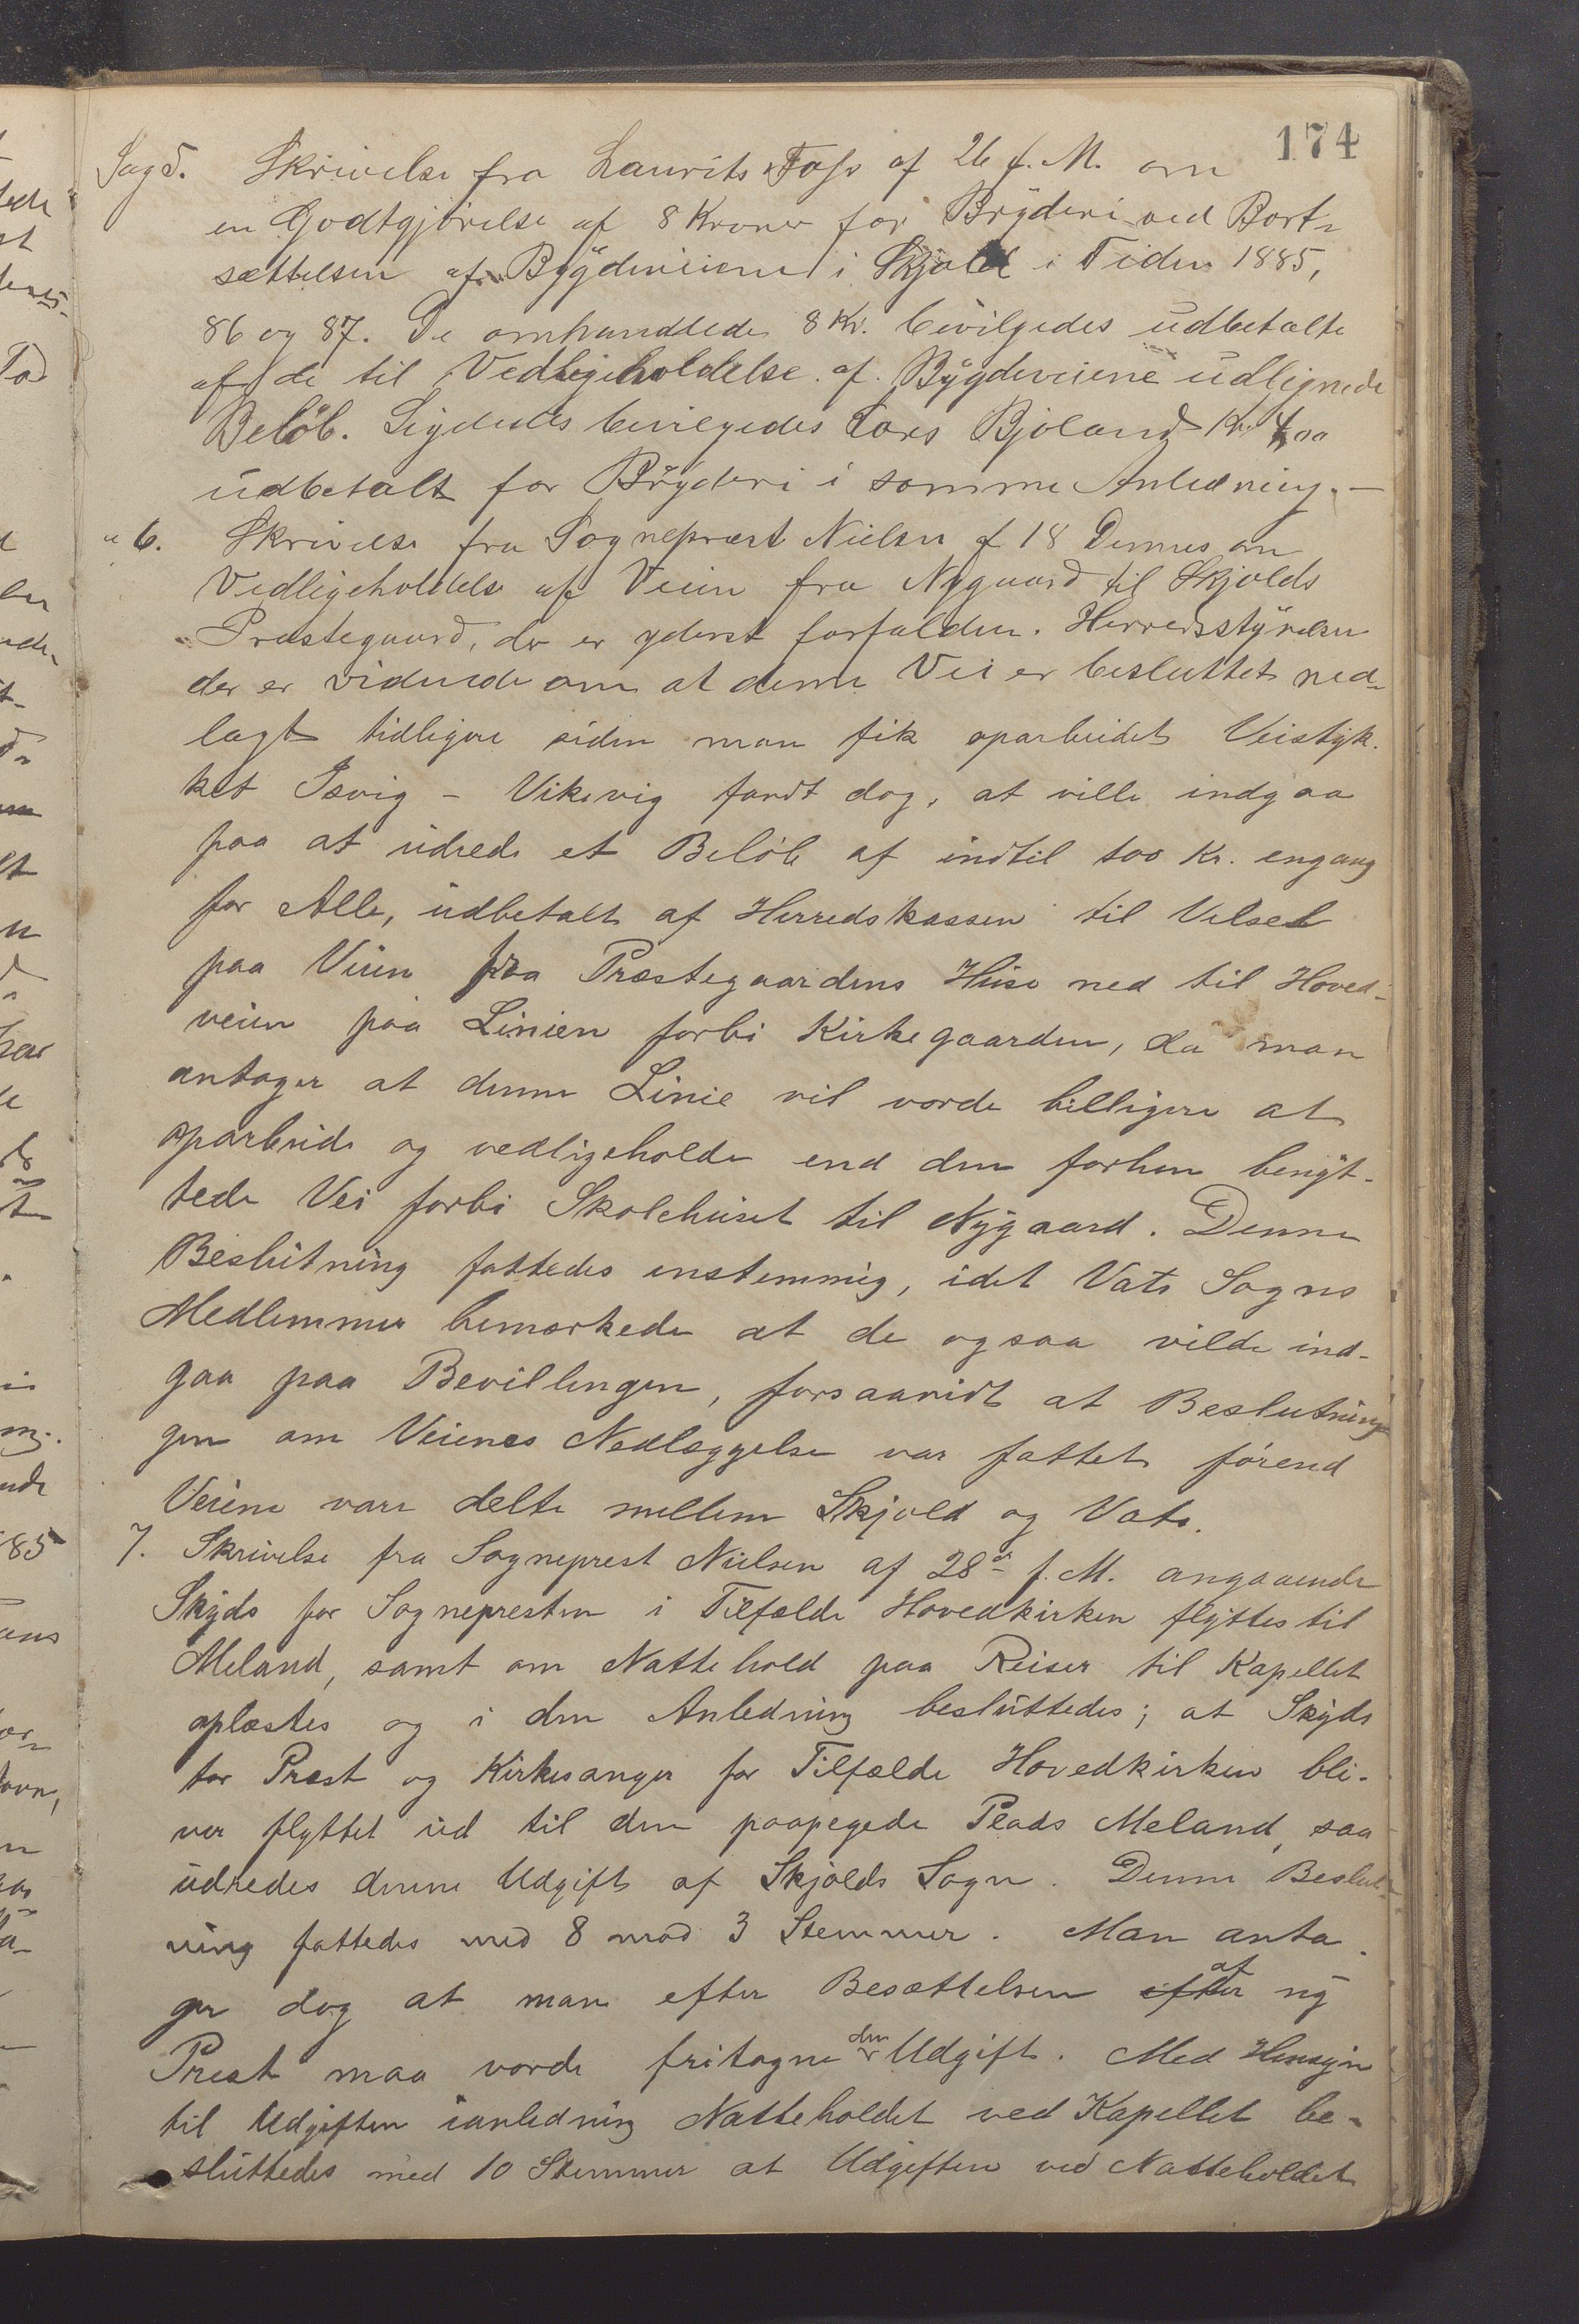 174
Sag 5. Skrivelse fra Laurits Foss af 26 f. M. om
en Godtgjörelse af 8 Kroner for Bryderi ved Bort-
sættelsen af Bygdeveiene i Skjold i Tiden 1885,
86 og 87. De omhandlede 8 Kr. bevilgedes udbetalte
af de til Vedligeholdelse af Bygdeveiene udlignede
Belöb. Ligeledes bevilgedes Lars Bjoland Kr. 4,00
udbetalt for Bryderi i samme Anledning.—
" 6. Skrivelse fra Sogneprest Nielsen af 18 Dennes om
Vedligeholdelse af Veien fra Nygaard til Skjolds
Prestegaard, der er yderst forfalden. Herredsstyrelsen
der er vidende om at denne Vei er besluttet ned-
lagt tidligere siden man fik oparbeidet Veistyk-
ket Isvig - Vikevig fandt dog, at ville indgaa
paa at udrede et Beløb af indtil 100 Kr. engang
for Alle, udbetalt af Herredskassen til
paa Veien fra Præstegaardens Huse ned til Hoved-
veien paa Linien forbi Kirkegaarden, da man
antager at denne Linie vil vorde billigere at
oparbeide og vedligeholde end den forhen benyt-
tede Vei forbi Skolehuset til Nygaard. Denne
Beslutning fattedes enstemmig, idet Vats Sogns
Medlemmer bemærkede at de ogsaa vilde ind-
gaa paa Bevillingen, forsaavidt at Beslutnin-
gen om Veienes Nedlæggelse var fattet førend
Veiene vare delte mellem Skjold og Vats.
7. Skrivelse fra Sogneprest Nielsen af 28de f. M. angaaende
Skyds for Sognepresten i Tilfælde Hovedkirken flyttes til
Meland, samt om Nattehold paa Reiser til Kapellet
oplæstes og i den Anledning besluttedes; at Skyds
for Præst og Kirkesanger for Tilfælde Hovedkirken bli-
ver flyttet ud til den paapegede Plads Meland, saa
udredes denne Udgift af Skjolds Sogn. Denne Beslut-
ning fattedes med 8 mod 3 Stemmer. Man anta-
ger dog at man efter Besættelsen efter af ny
Prest maa vorde fritagne den Udgift. Med Hensyn
til Udgiften ianledning Natteholdet ved Kapellet be-
sluttedes med 10 Stemmer at Udgiften ved Natteholdet